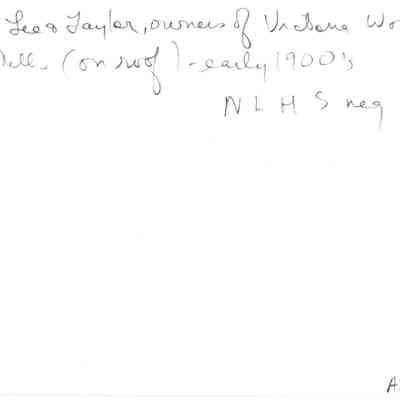 Lee & Taylor, owners of Victoria Wo
Mills (on roof) - early 1900's
N L H S neg
A